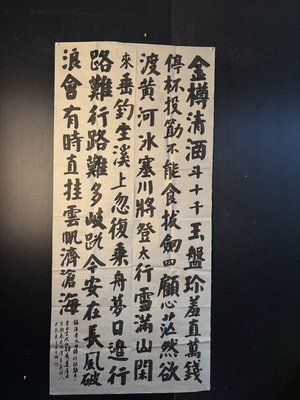 金樽清酒斗十千玉盤珍羞直萬錢
停杯投筯不能食拔劍四顧心茫然欲
渡黄河冰塞川將登太行雪滿山閑
來垂釣坐溪上忽復乘舟夢日邊行
路難行路難多歧路今安在長風破
浪會有時直挂雲帆濟滄海